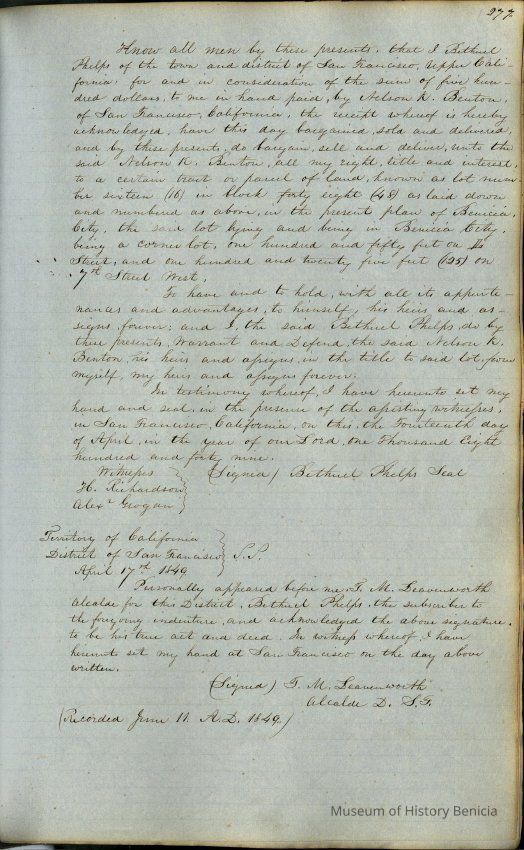 277
Know all men by these presents, that I Bethuel
Phelps of the town and district of San Francisco, Upper Cali-
fornia, for and in consideration of the sum of five hun-
dred dollars, to me in hand paid, by Nelson K. Benton,
of San Francisco, California, the receipt whereof is hereby
acknowledged, have this day bargained, sold and delivered,
and by these presents, do bargain, sell and deliver, unto the
said Nelson K. Benton, all my right, title and interest,
to a certain tract or parcel of land, known as lot num-
ber sixteen (16) in block forty eight (48) as laid down
and numbered as above, in the present plan of Benicia
City, the said lot lying and being in Benicia City,
being a corner lot, one hundred and fifty feet on
Street, and one hundred and twenty five feet (125) on
7th Street West.
To have and to hold, with all its apperte-
nances and advantages, to himself, his heirs and as-
signs, forever; and I, the said Bethuel Phelps, do by
these presents, Warrant and Defend, the said Nelson K.
Benton, his heirs and assigns, in the title to said lot, from
myself, my heirs and assigns forever.
In testimony whereof, I have hereunto set my
hand and seal, in the presence of the assisting witnesses,
in San Francisco, California, on this, the Fourteenth day
of April, in the year of our Lord, one Thousand Eight
hundred and forty nine.
Witnesses (Signed) Bethuel Phelps Seal
H. Richardson
Alexr Grogan
Territory of California
District of San Francisco S.S.
April 17th 1849
Personally appeared before me T. M. Leavenworth
Alcalde for this District, Bethuel Phelps, the subscriber to
the foregoing indenture, and acknowledged the above signature,
to be his true act and deed. In witness whereof, I have
hereunto set my hand at San Francisco on the day above
written.
(Signed) T. M. Leavenworth
Alcalde D. S. F.
(Recorded June 11. A.D. 1849.)
Museum of History Benicia